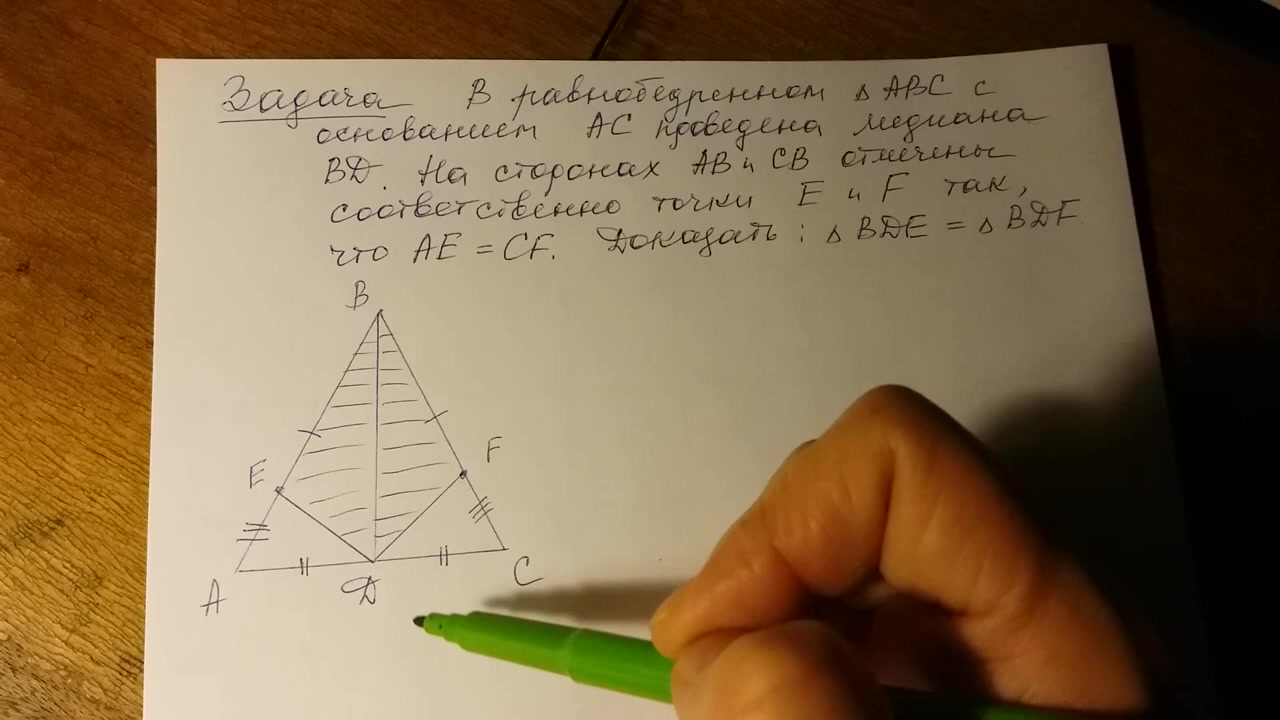 Задача В равнобедренном △ ABC с
основанием AC проведена медиана
BD. На сторонах AB и CB отмечены
соответственно точки E и F так,
что AE = CF. Доказать: △ BDE = △ BDF
B
E
F
A
D
C